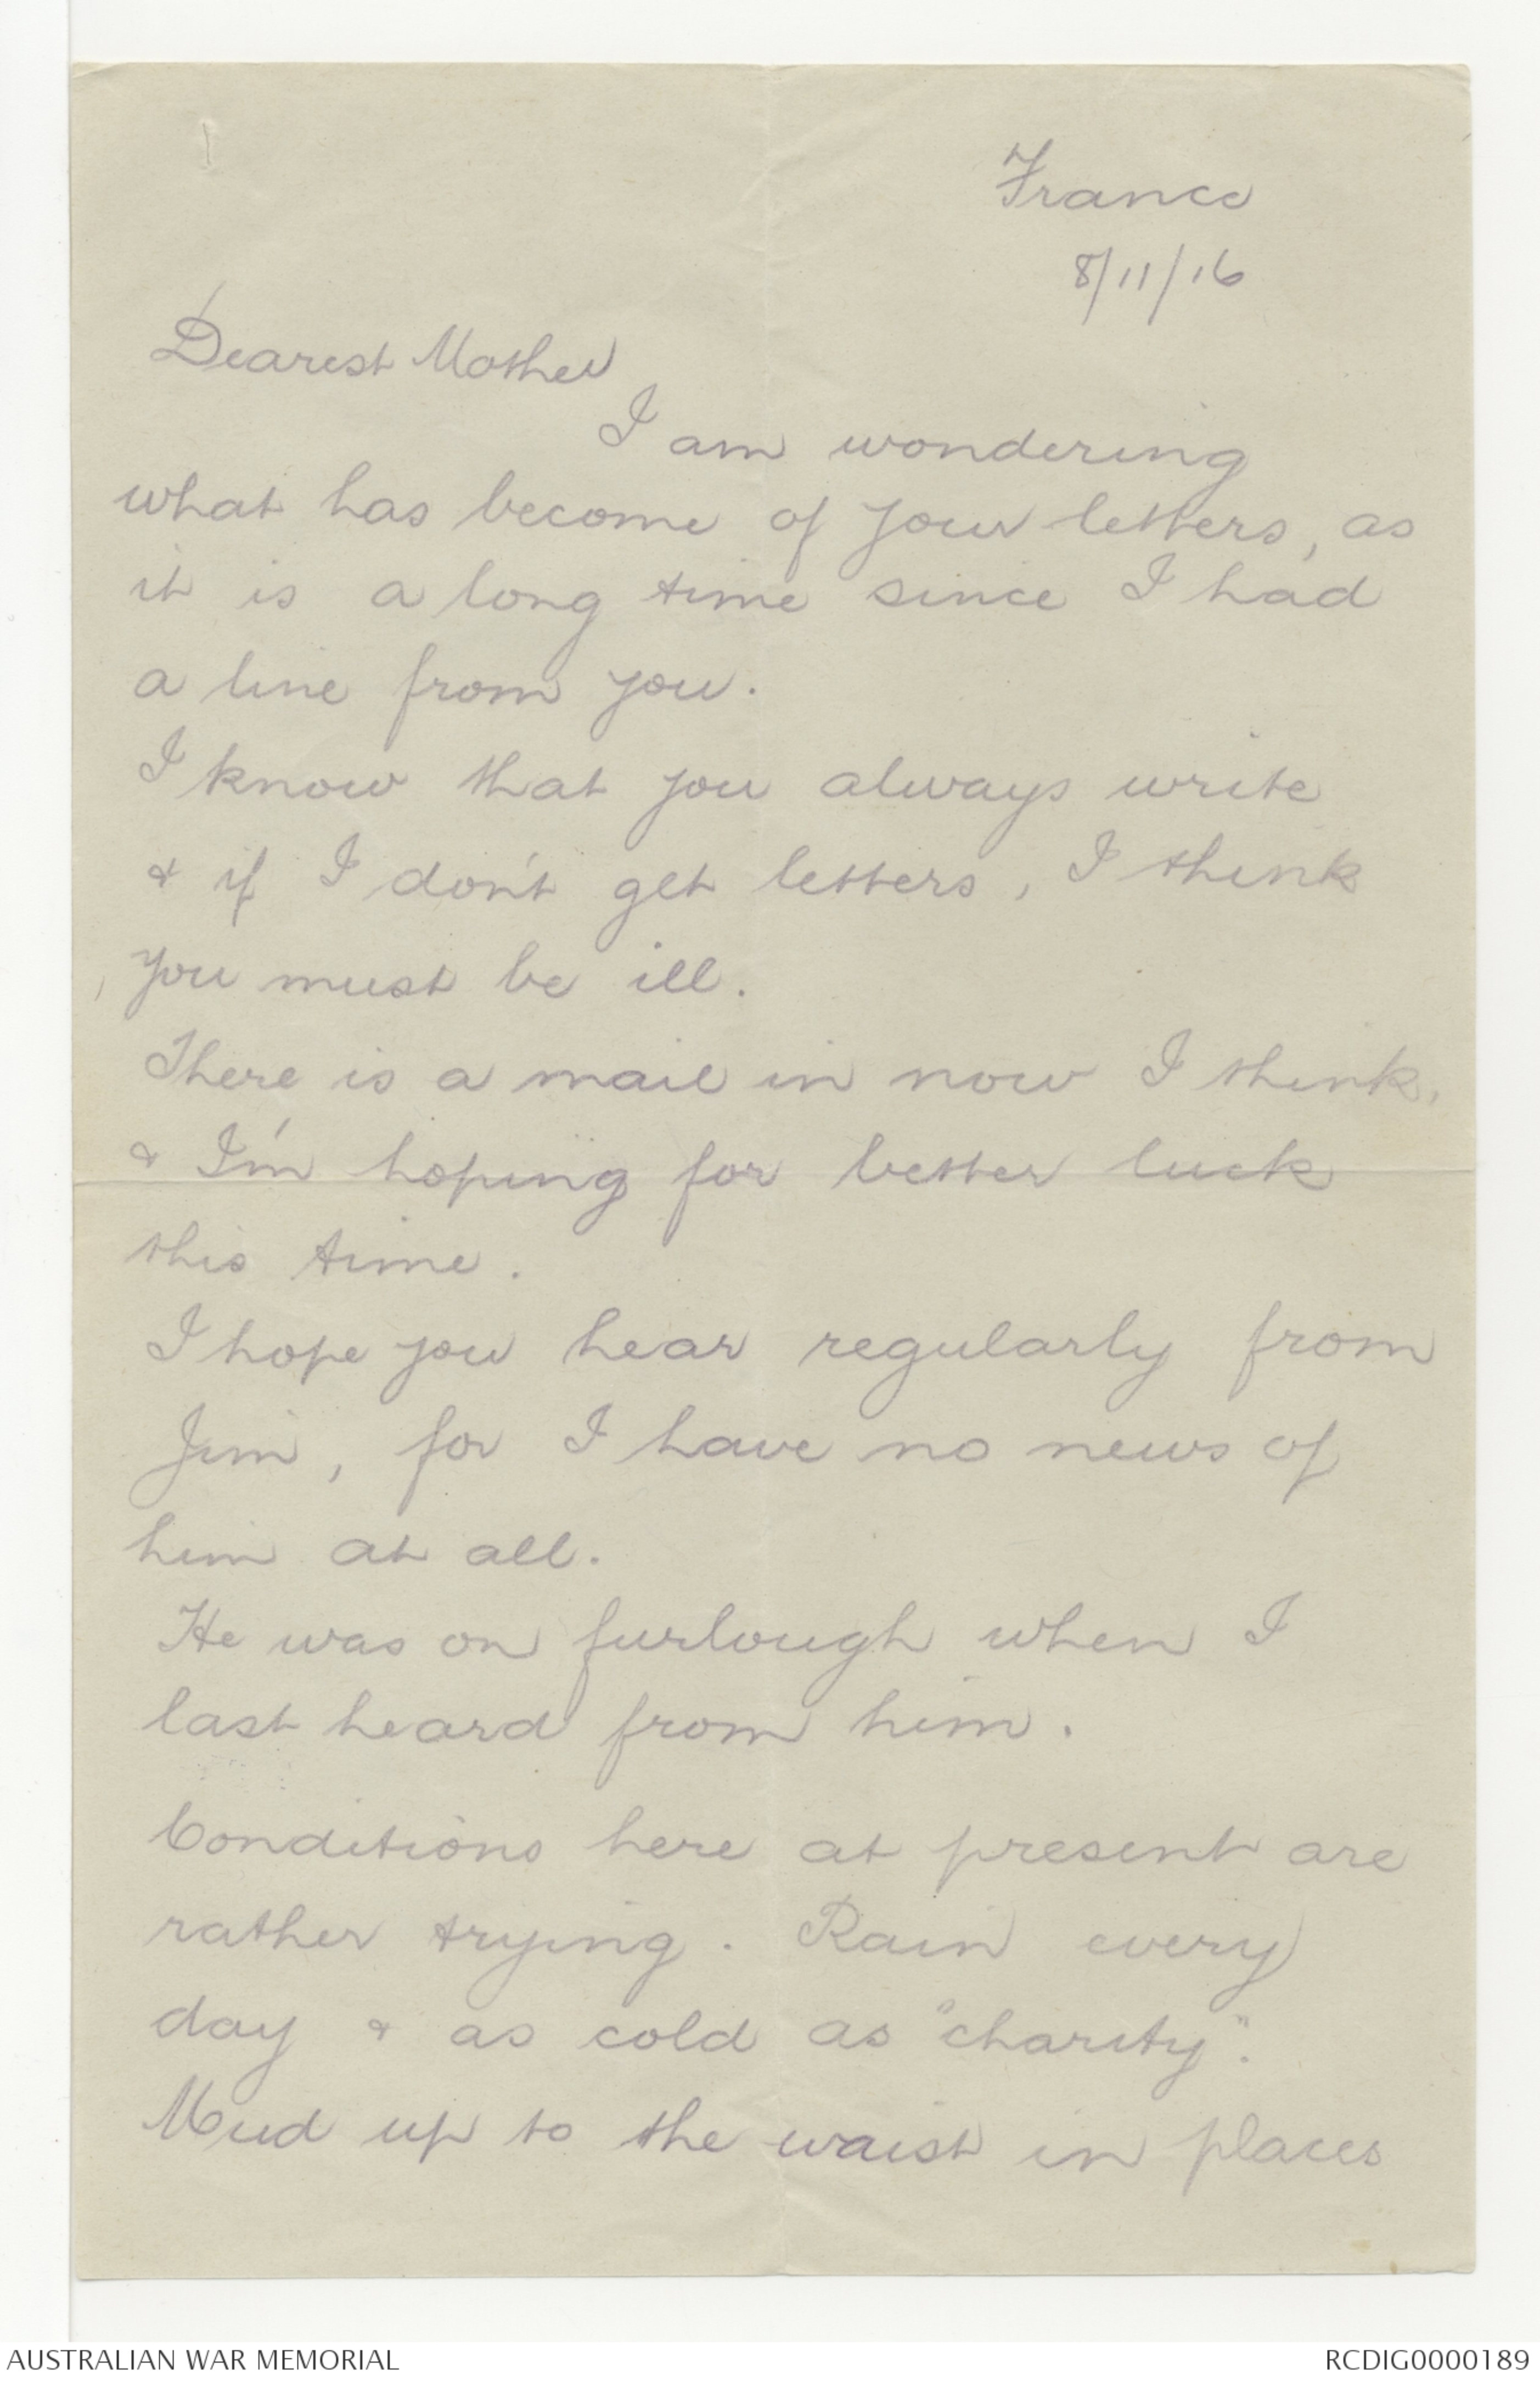 France
8/11/16
Dearest Mother
I am wondering
what has become of your letters, as
it is a long time since I had
a line from you.
I know that you always write
& if I don't get letters, I think
you must be ill.
There is a mail in now I think,
& I'm hoping for better luck
this time.
I hope you hear regularly from
Jim, for I have no news of
him at all.
He was on furlough when I
last heard from him.
Conditions here at present are
rather trying. Rain every
day & as cold as "charity".
Mud up to the waist in places
AUSTRALIAN WAR MEMORIAL
RCDIG0000189